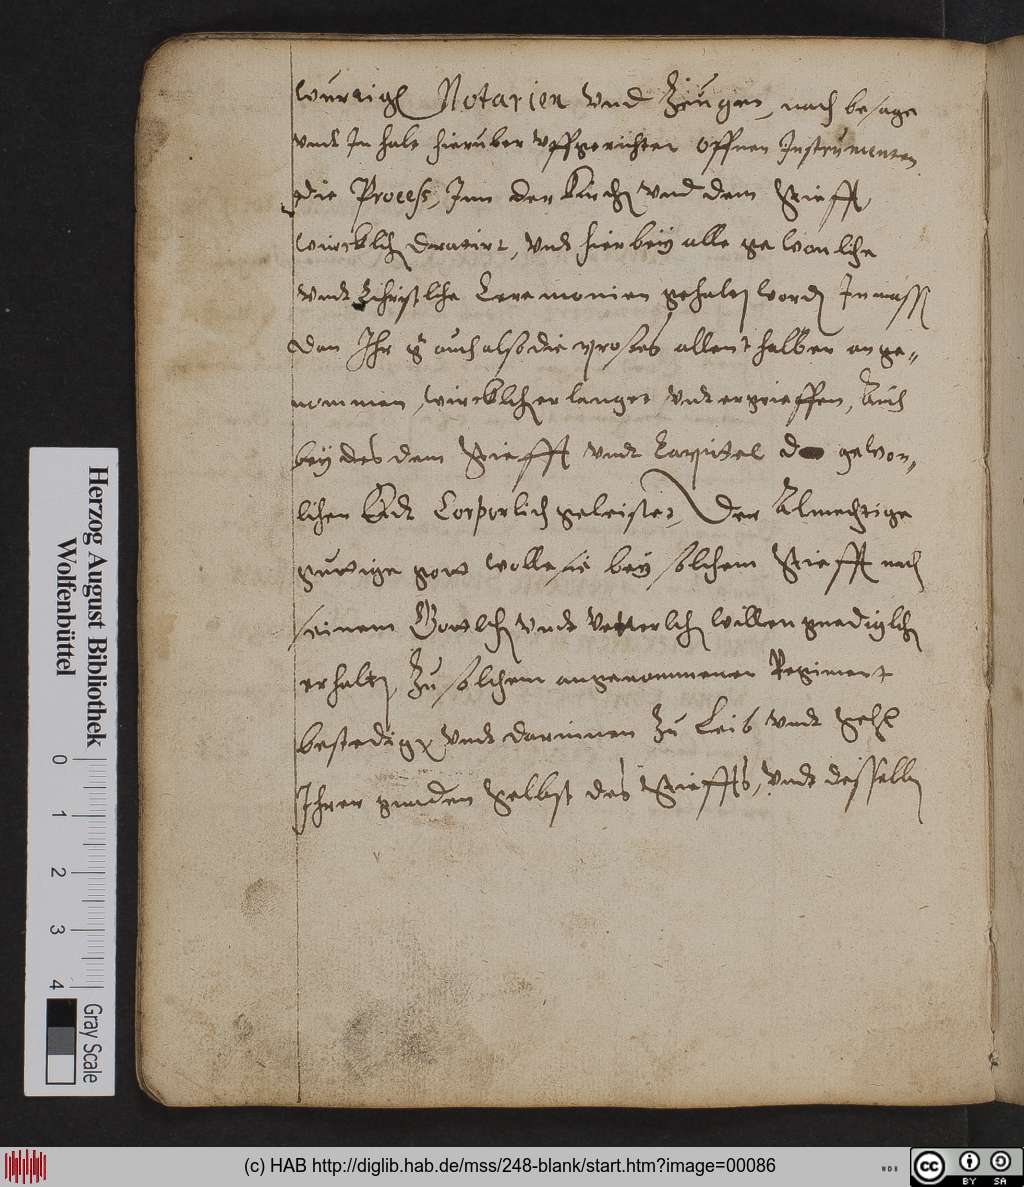 wurdigl Notarien vnd Zeugen, nach besage
vndt Inhalt hieruber vffgerichten offnen Instrumenten
die Process, Inn der Kirch vnd dem Stiefft,
wircklich vndt hierbey alle gewonliche
vndt Christliche Ceremonien gehalten worden Inmassen
dan Ihr g auch also die proses allenthalben ange„
nommen, wircklich erlanget vndt ergrieffen, Auch
beydes dem Stiefft vndt Capittel gewon„
lichen Eidt Corporlich geleistet, Der Almechtige
guttige gott wolle sie bey solchem Stiefft nach
seinem Gottlichen vndt vetterlichen willen gnediglich
erhalten, Zu solchem angenommenen Regiment
bestedigen vndt darinnen Zu Leib vndt Sehl
Ihrer gnaden Selbst des Stieffts, vndt desselben
Herzog August Bibliothek
Wolfenbüttel
0 1 2 3 4
Gray Scale
(c) HAB http://diglib.hab.de/mss/248-blank/start.htm?image=00086
WDB
cc BY SA